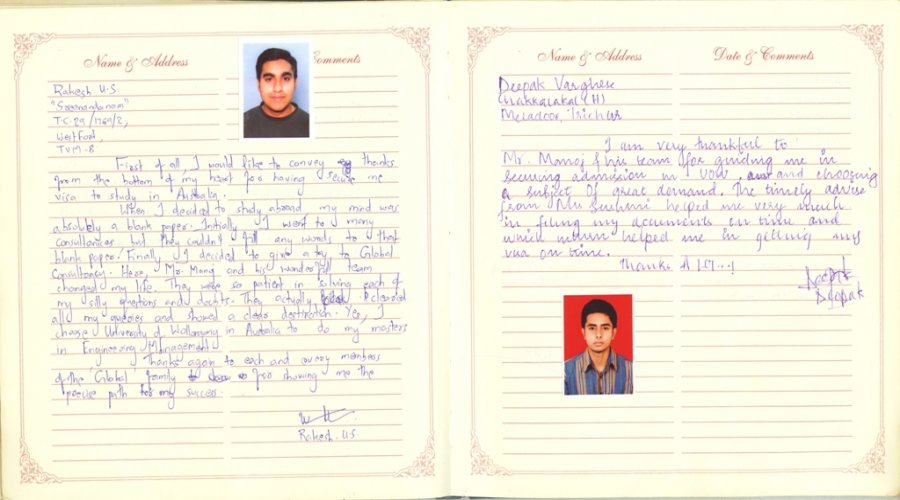 Name & Address
Comments
Rakesh U.S
T.C. 29/1769/2,
West Fort,
TVM-8
First of all, I would like to convey thanks
from the bottom of my heart for having secure me
visa to study in Australia.
When I decided to study abroad my mind was
absolutely a blank paper. Initially I went to many
consultancies but they couldn't fill any words to that
blank paper. Finally I decided to give a try to Global
Consultancy. Here, Mr. Manoj and his wonderful team
changed my life. They were so patient in solving each of
my silly questions and doubts. They actually cleared
all my queries and showed a clear destination. Yes, I
choose University of Wollongong in Australia to do my masters
in Engineering Management.
Thanks again to each and every members
of the 'Global' family for showing me the
precise path for my success.
Rakesh. U.S
Name & Address
Date & Comments
Deepak Varghese
(H)
Meladoor, Trichur
I am very thankful to
Mr. Manoj & his team for guiding me in
securing admission in UOW and choosing
a subject of great demand. The timely advise
from Ms helped me very much
in filing my documents on time and
which inturn helped me in getting my
visa on time.
Thanks A lot...!
Deepak
Deepak